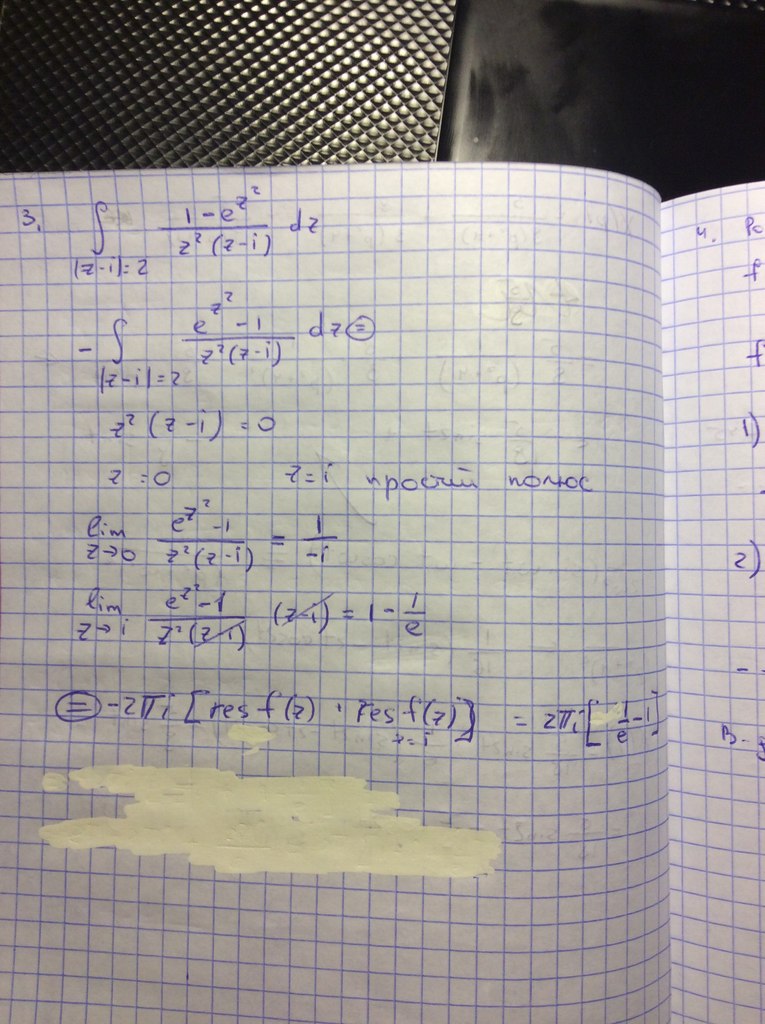 3. ∫ (1 - e^{z^2}) / (z^2 (z-i)) dz
|z-i|=2
- ∫ (e^{z^2} - 1) / (z^2 (z-i)) dz ⊜
|z-i|=2
z^2 (z-i) = 0
z = 0 z = i простий полюс
lim_{z→0} (e^{z^2} - 1) / (z^2 (z-i)) = 1 / -i
lim_{z→i} (e^{z^2} - 1) / (z^2 (z-i)) (z-i) = 1 - 1/e
⊜ -2πi [res f(z) + res_{z=i} f(z)] = 2πi [1/e - 1]
4.
f
f
1)
2)